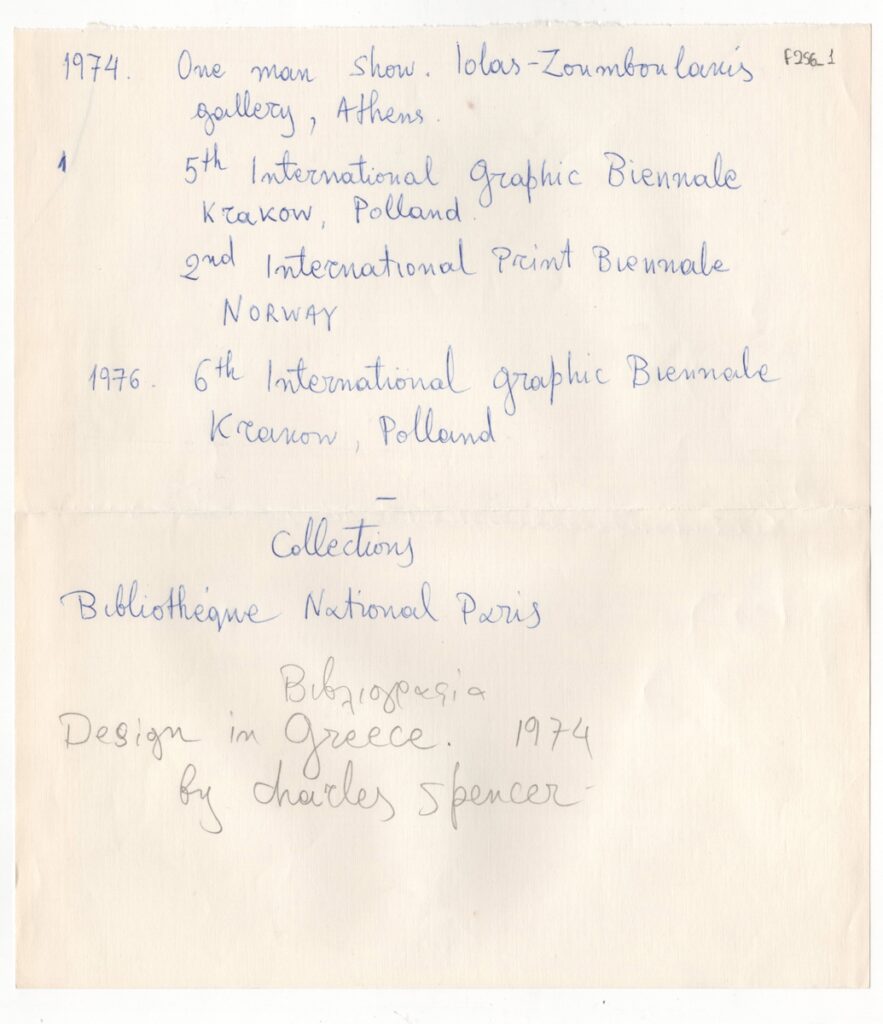 F256_1
1974. One man show. Iolas-Zoumboulakis
gallery, Athens.
1
5th International Graphic Biennale
Krakow, Polland.
2nd International Print Biennale
NORWAY
1976. 6th International graphic Biennale
Krakow, Polland
—
Collections
Bibliothéque National Paris
Βιβλιογραφία
Design in Greece. 1974
by Charles Spencer